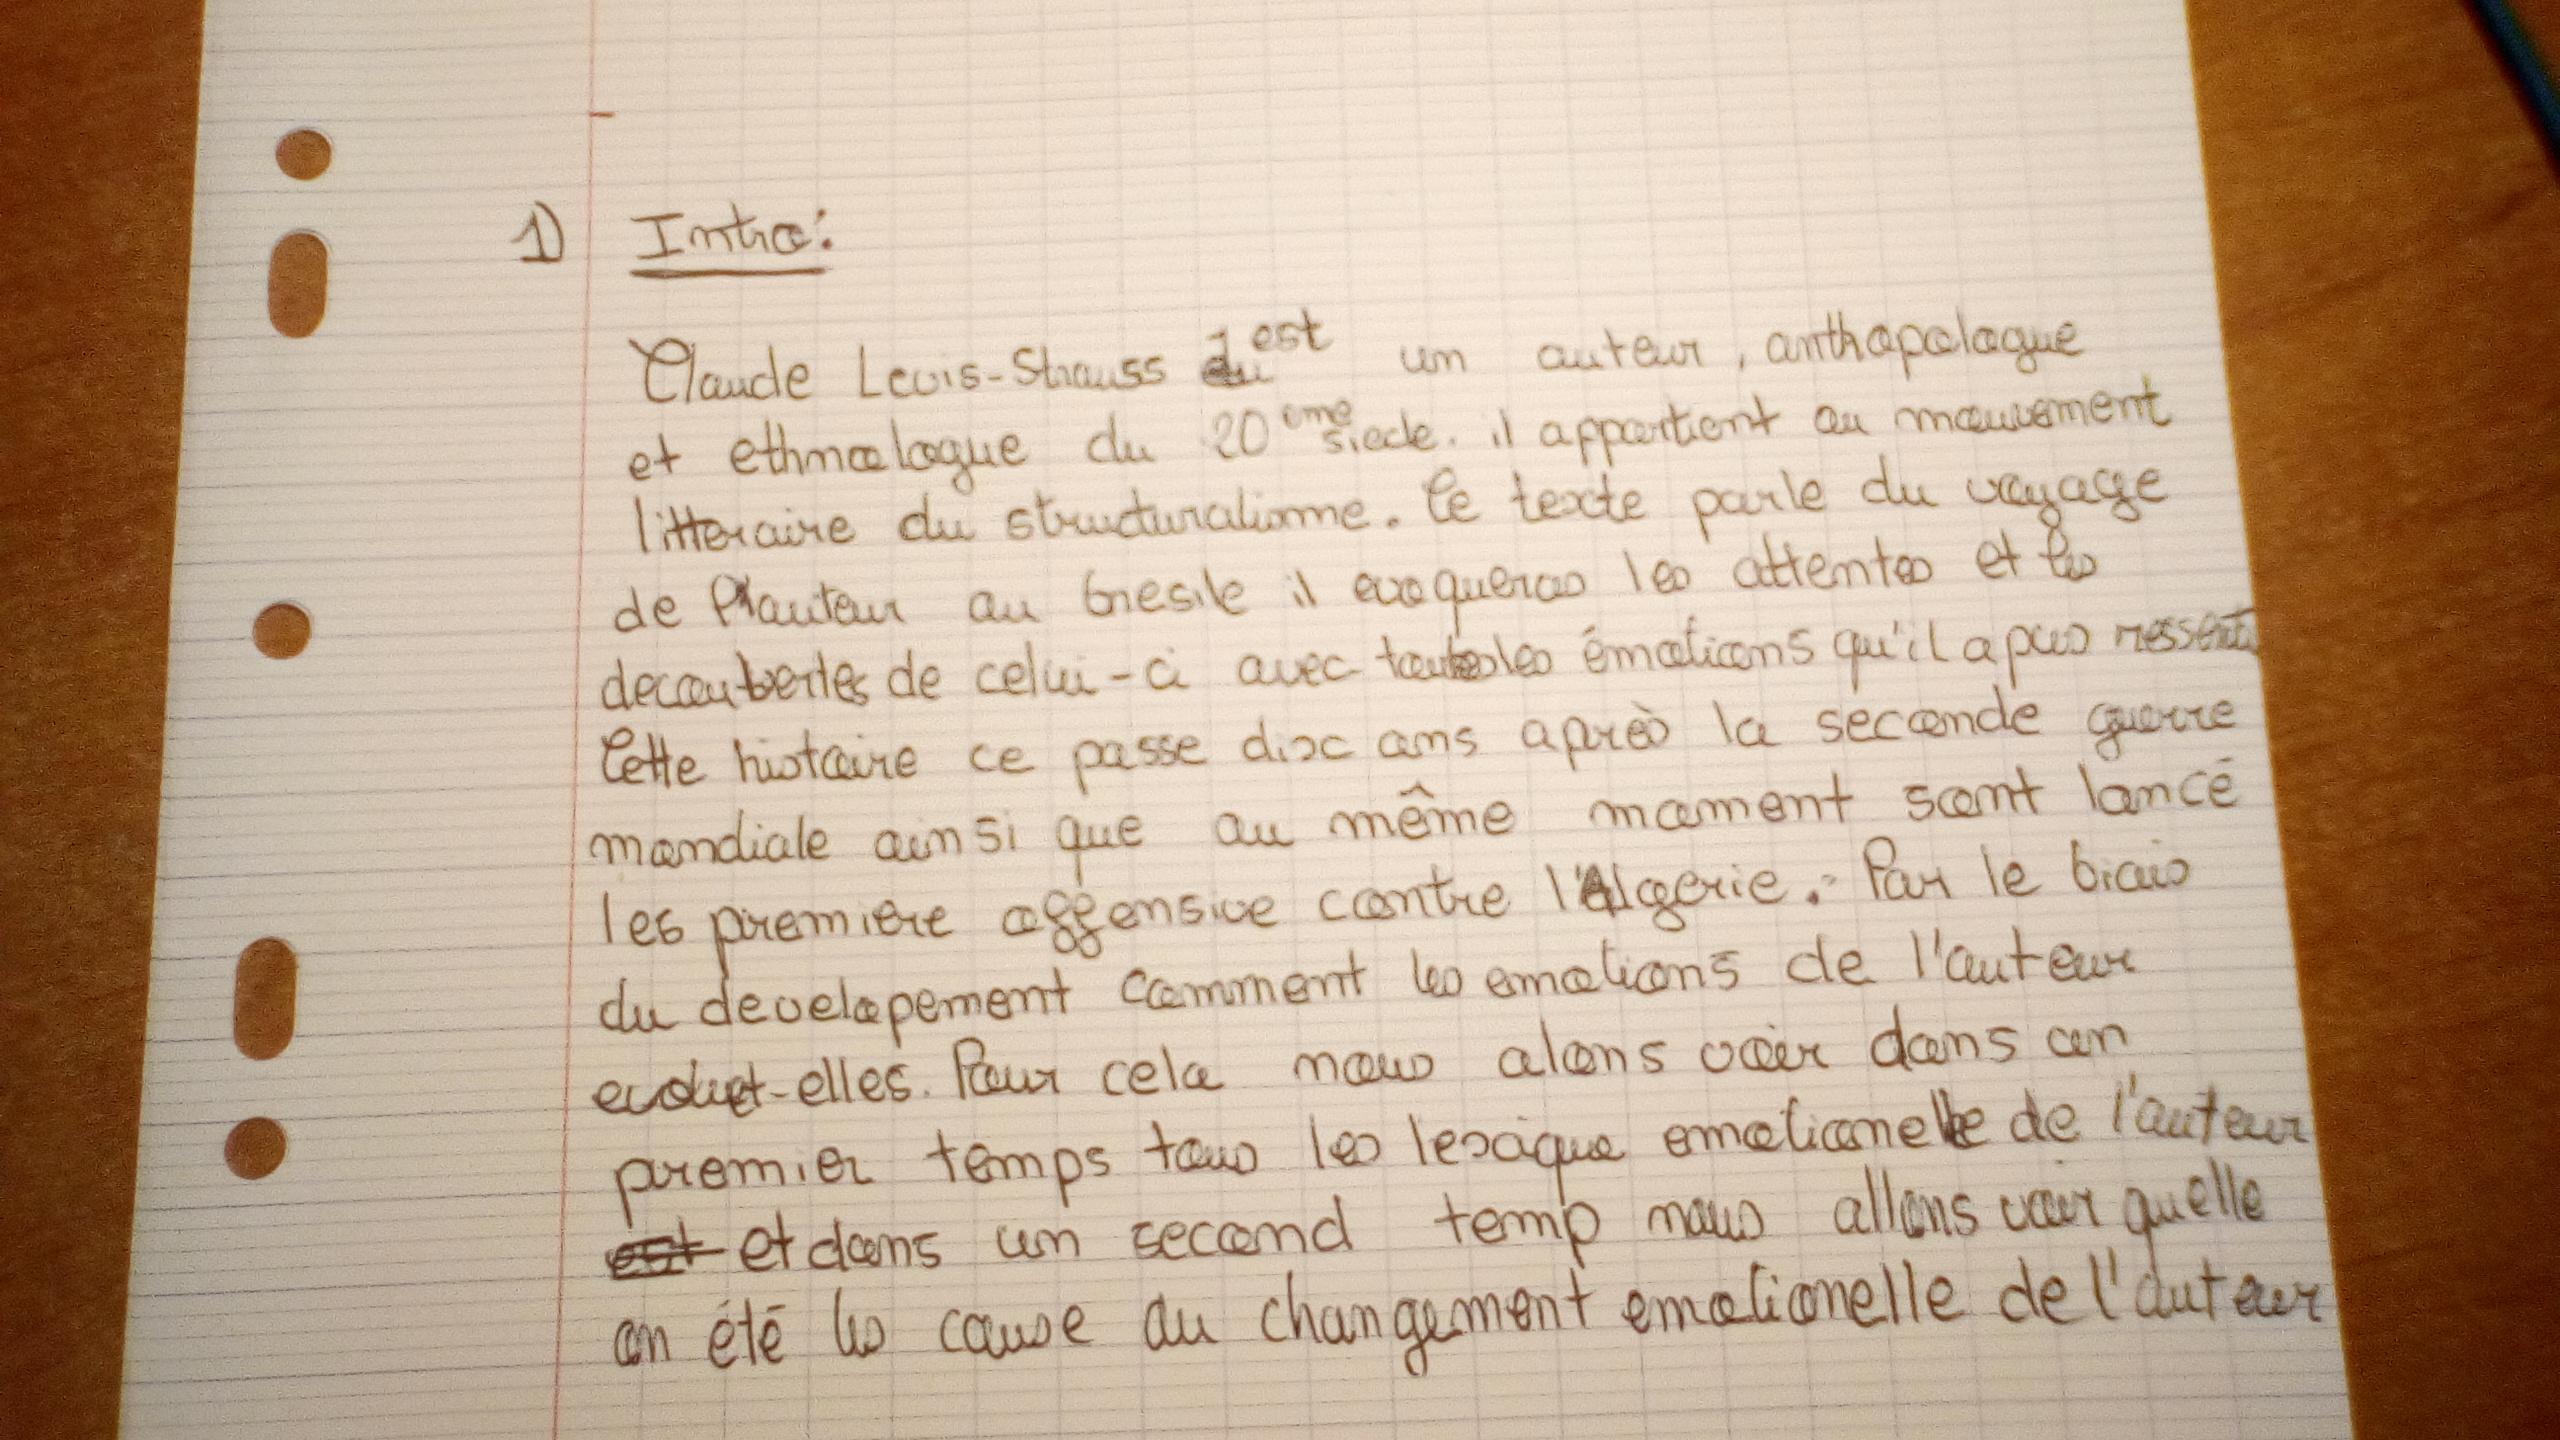 1) Intro:
Claude Levis-Strauss est un auteur, anthopologue
et ethnologue du 20eme siecle. il appartient au mouvement
litteraire du structuralisme. Ce texte parle du voyage
de l'auteur au bresile il evoqueras les attentes et les
decouvertes de celui-ci avec toutes les émotions qu'il a pus ressenti
Cette histoire ce passe dix ans après la seconde guerre
mondiale ainsi que au même moment sont lancé
les premiere offensive contre l'Algerie. Par le biais
du developement comment les emotions de l'auteur
evoluet-elles. Pour cela nous alons voir dans un
premier temps tous les lexique emotionelle de l'auteur
et dans un second temp nous allons voir quelle
on été les cause du changement emotionelle de l'auteur